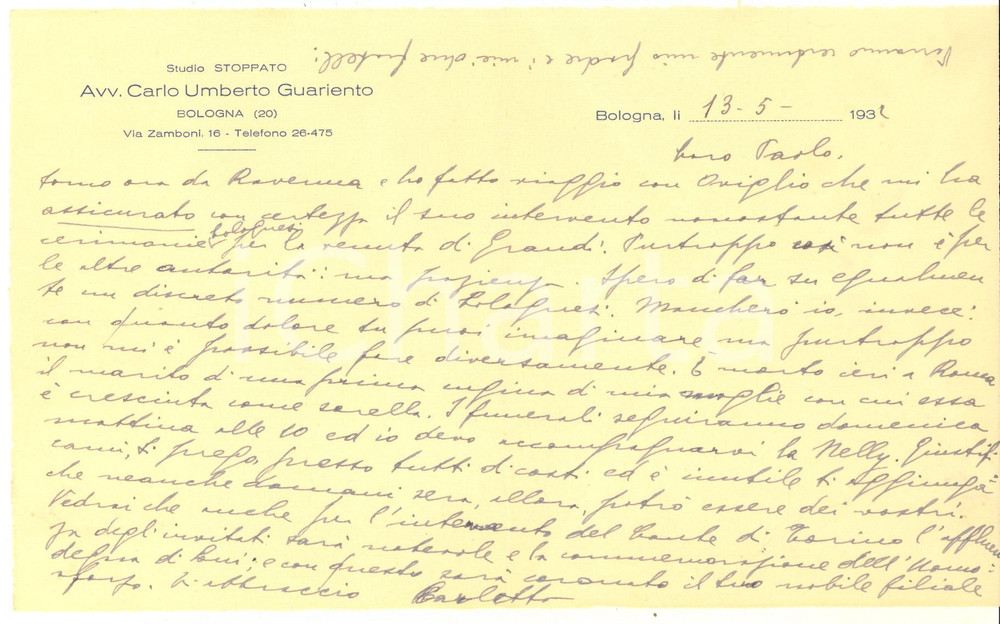 Verranno certamente mio padre e i miei due fratelli.
Studio STOPPATO
Avv. Carlo Umberto Guariento
BOLOGNA (20)
Via Zamboni, 16 - Telefono 26-475
Bologna, li 13-5- 1932
Caro Paolo,
torno ora da Ravenna e ho fatto viaggio con Oviglio che mi ha
assicurato con certezza il suo intervento nonostante tutte le
cerimonie bolognesi per la venuta di Grandi. Purtroppo così non è per
le altre autorità: ma pazienza. Spero di far su egualmen
te un discreto numero di bolognesi. Mancherò io, invece:
con quanto dolore tu puoi imaginare ma purtroppo
non mi è possibile fare diversamente. È morto ieri a Roma
il marito di una prima cugina di mia moglie con cui essa
è cresciuta come sorella. I funerali seguiranno domenica
mattina alle 10 ed io devo accompagnarvi la Nelly. Giustifi
cami, ti prego, presso tutti di costì ed è inutile ti aggiunga
che neanche domani sera, allora, potrò essere dei vostri.
Vedrai che anche per l'intervento del Conte di Torino l'affluen
za degli invitati sarà notevole e la commemorazione dell'Uomo
degna di Lui; e con questo sarà coronato il tuo nobile filiale
sforzo. Ti abbraccio Carletto
iCharta